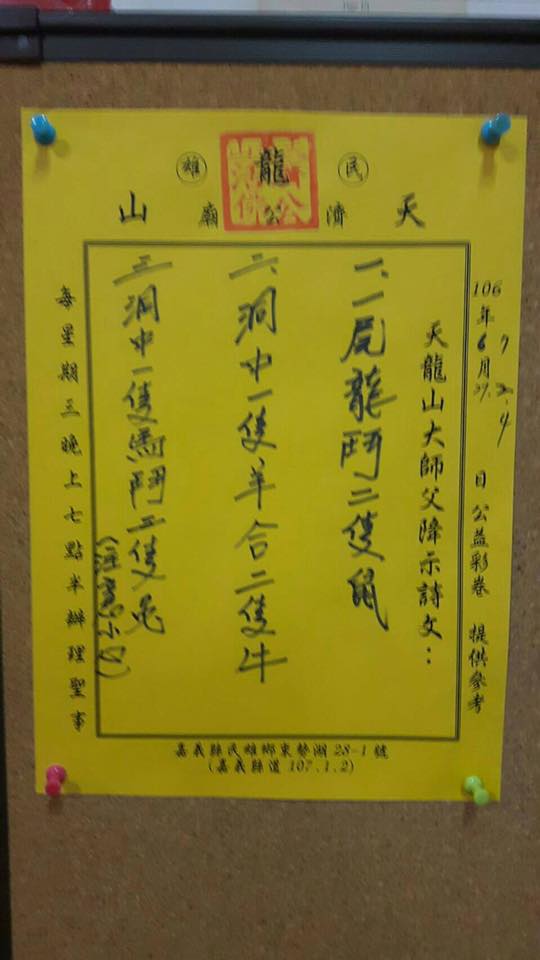 民龍雄
天濟公廟山
106年6月29. 7 2.4 日 公益彩卷 提供參考
天龍山大師父降示詩文：
一、一尾龍鬥二隻鼠
二、洞中一隻羊合二隻牛
三、洞中一隻馬鬥三隻兔
（注意小心）
每星期三晚上七點半辦理聖事
嘉義縣民雄鄉東勢湖28-1號
(嘉義縣道107.1.2)